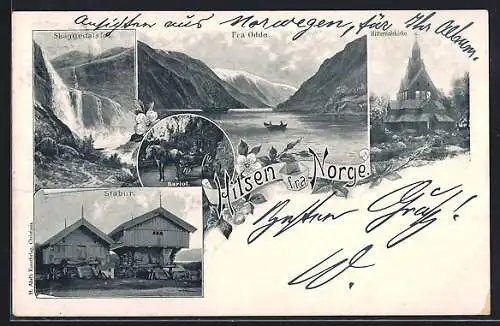 Ansichten aus Norwegen, für Ihr Album.
Skjæggedalsfos.
Fra Odde.
Hitterdalskirke
Kariol.
Hilsen fra Norge.
Stabur.
Besten Gruß!
H. Abels Kunstforlag, Christiania